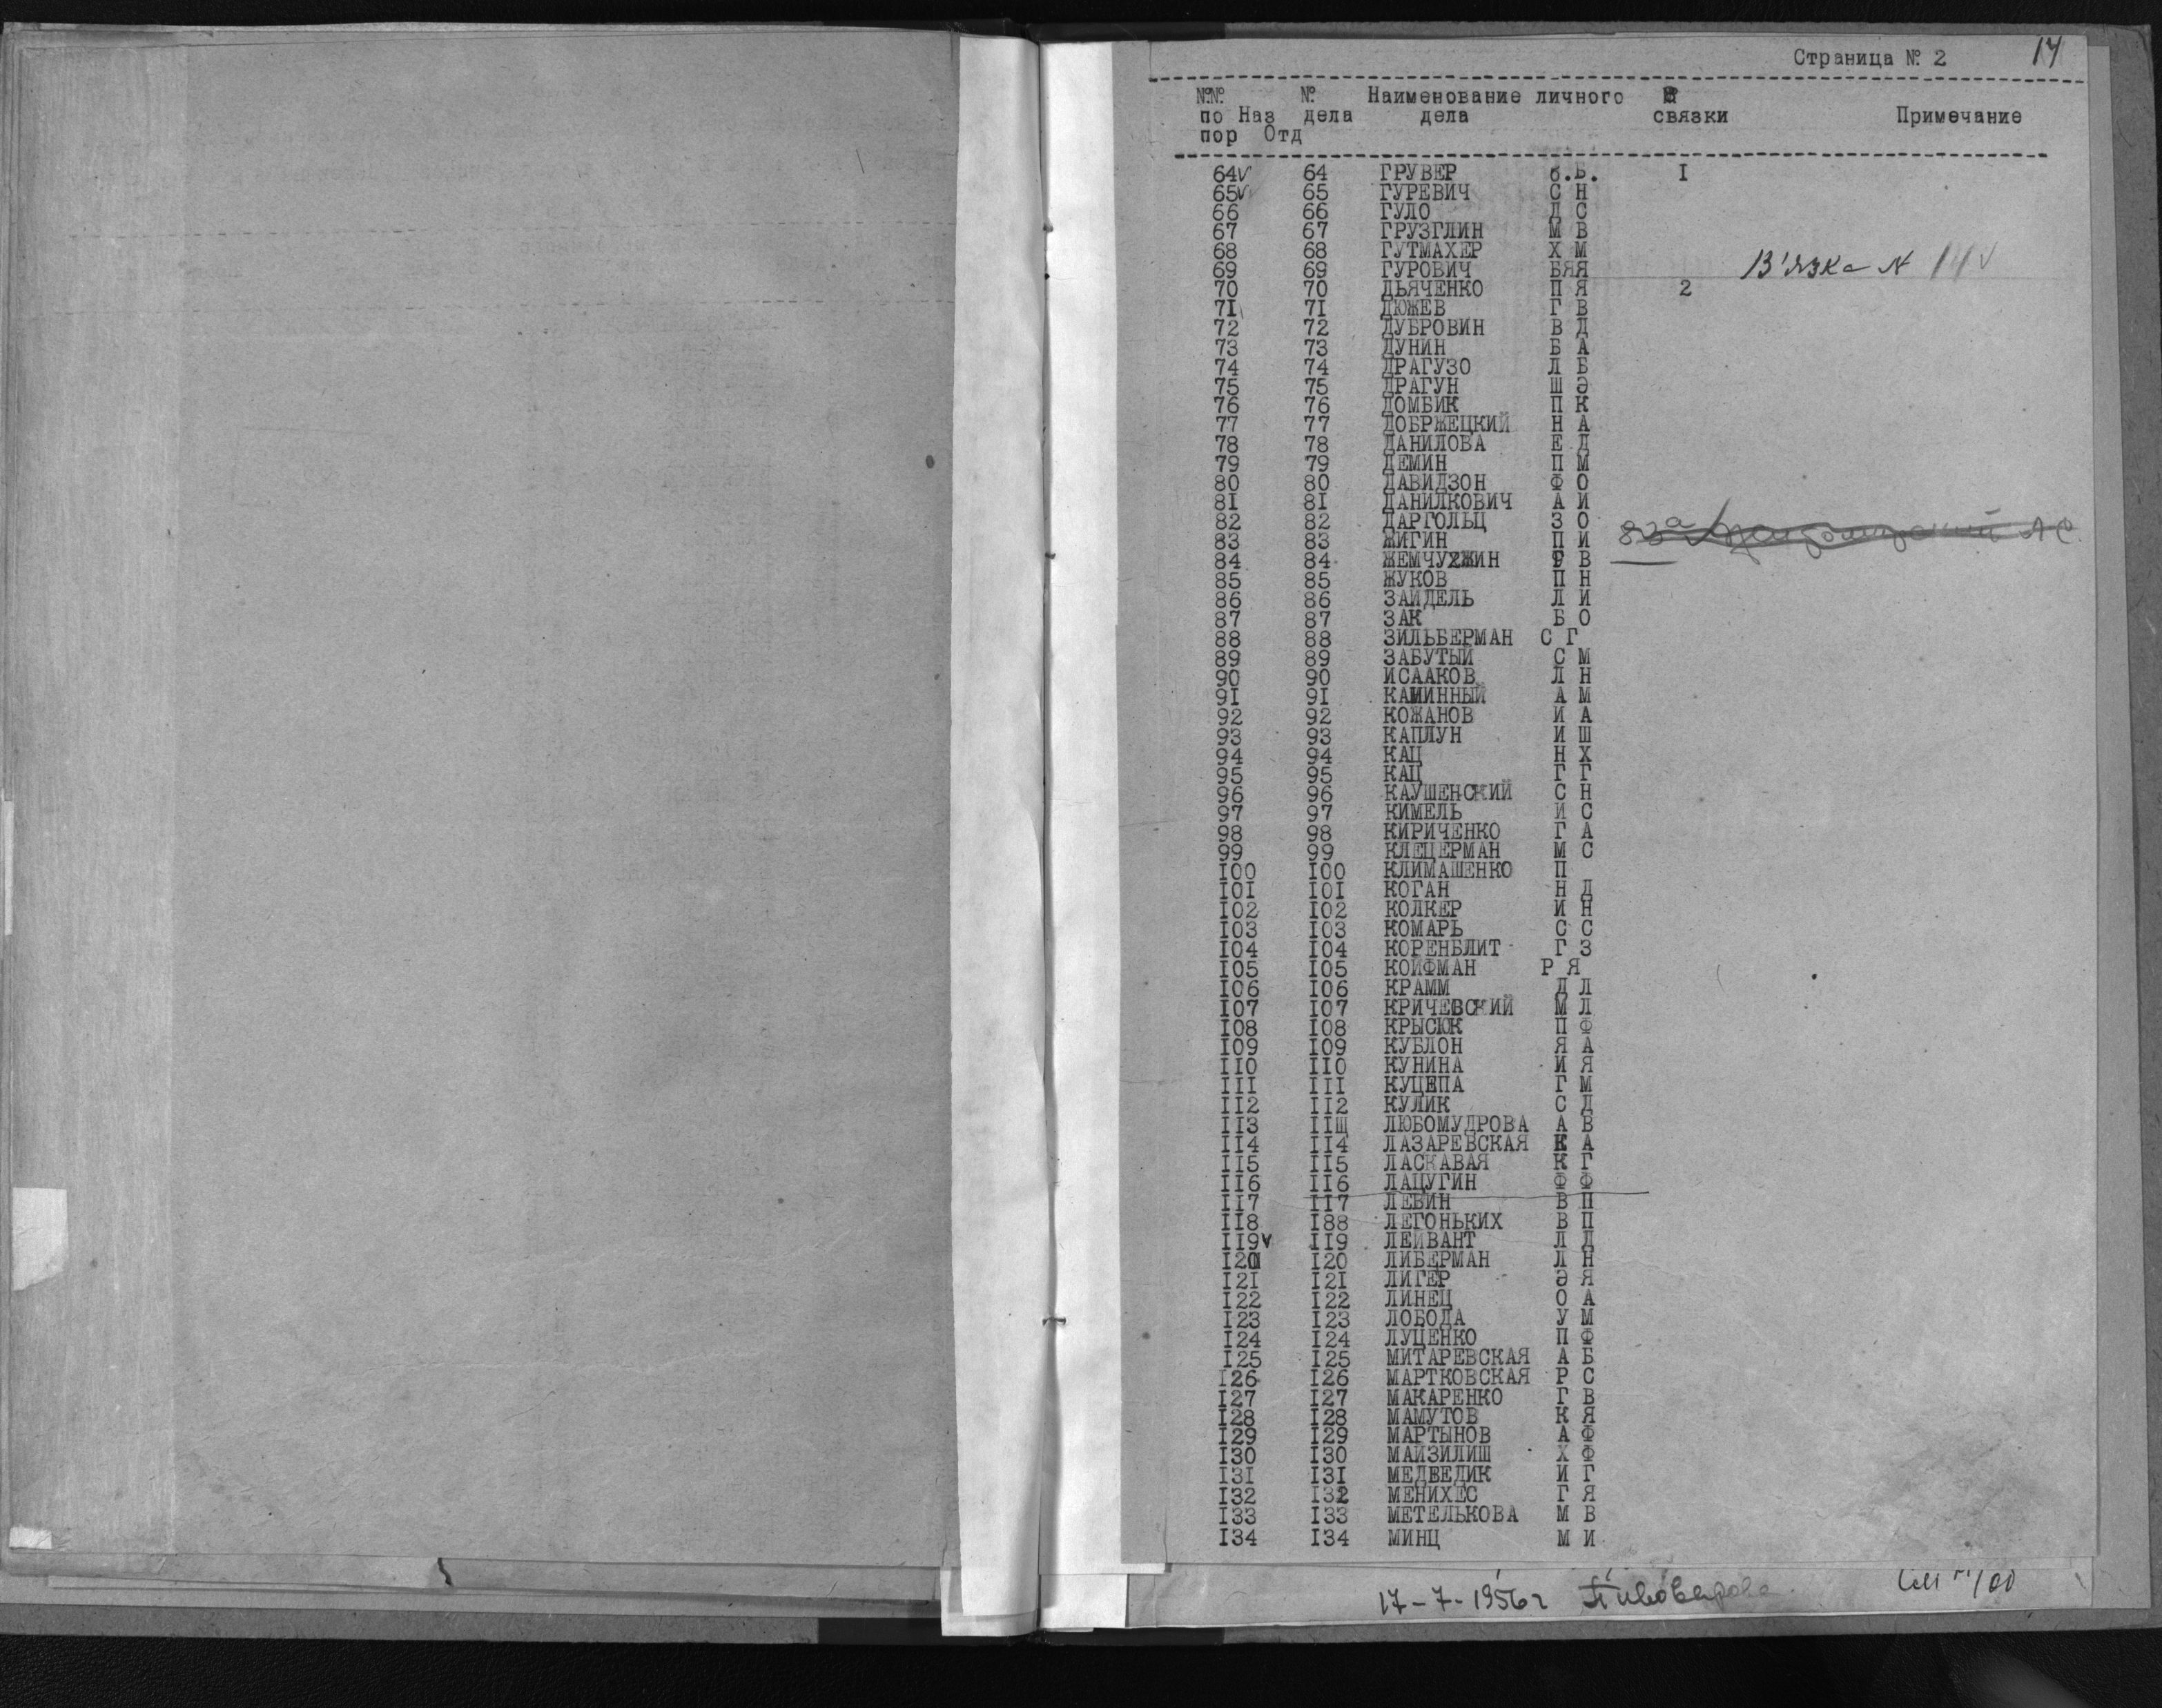 Страница № 2 14
№№ № Наименование личного
по Наз дела дела связки Примечание
пор Отд
64 V 64 ГРУВЕР .Б. I
65 V 65 ГУРЕВИЧ С Н
66 66 ГУЛО Д С
67 67 ГРУЗГЛИН М В
68 68 ГУТМАХЕР Х М
69 69 ГУРОВИЧ БЯЯ В'язка N 14 V
70 70 ДЬЯЧЕНКО П Я 2
7I 7I ДЮЖЕВ Г В
72 72 ДУБРОВИН В Д
73 73 ДУНИН Б А
74 74 ДРАГУЗО Л Б
75 75 ДРАГУН Ш Э
76 76 ДОМБИК П К
77 77 ДОБРЖЕЦКИЙ Н А
78 78 ДАНИЛОВА Е Д
79 79 ДЕМИН П М
80 80 ДАВИДЗОН Ф О
8I 8I ДАНИЛКОВИЧ А И
82 82 ДАРГОЛЬЦ З О
83 83 ЖИГИН П И
84 84 ЖЕМЧУЖИН В
85 85 ЖУКОВ П Н
86 86 ЗАЙДЕЛЬ Л И
87 87 ЗАК Б О
88 88 ЗИЛЬБЕРМАН С Г
89 89 ЗАБУТЫЙ С М
90 90 ИСААКОВ Л Н
9I 9I КАМИННЫЙ А М
92 92 КОЖАНОВ И А
93 93 КАПЛУН И Ш
94 94 КАЦ Н Х
95 95 КАЦ Г Г
96 96 КАУШЕНСКИЙ С Н
97 97 КИМЕЛЬ И С
98 98 КИРИЧЕНКО Г А
99 99 КЛЕЦЕРМАН М С
I00 I00 КЛИМАШЕНКО П
I0I I0I КОГАН Н Д
I02 I02 КОЛКЕР И Н
I03 I03 КОМАРЬ С С
I04 I04 КОРЕНБЛИТ Г З
I05 I05 КОЙФМАН Р Я
I06 I06 КРАММ Д Л
I07 I07 КРИЧЕВСКИЙ М Л
I08 I08 КРЫСЮК П Ф
I09 I09 КУБЛОН Я А
II0 II0 КУНИНА И Я
III III КУЦЕПА Г М
II2 II2 КУЛИК С Д
II3 IIЩ ЛЮБОМУДРОВА А В
II4 II4 ЛАЗАРЕВСКАЯ Е А
II5 II5 ЛАСКАВАЯ К Г
II6 II6 ЛАЦУГИН Ф Ф
II7 II7 ЛЕВИН В П
II8 I88 ЛЕГОНЬКИХ В П
II9 V II9 ЛЕЙВАНТ Л Д
I20 I20 ЛИБЕРМАН Л Н
I2I I2I ЛИГЕР Э Я
I22 I22 ЛИНЕЦ О А
I23 I23 ЛОБОДА У М
I24 I24 ЛУЦЕНКО П Ф
I25 I25 МИТАРЕВСКАЯ А Б
I26 I26 МАРТКОВСКАЯ Р С
I27 I27 МАКАРЕНКО Г В
I28 I28 МАМУТОВ К Я
I29 I29 МАРТЫНОВ А Ф
I30 I30 МАЙЗИЛИШ Х Ф
I3I I3I МЕДВЕДИК И Г
I32 I32 МЕНИХЕС Г Я
I33 I33 МЕТЕЛЬКОВА М В
I34 I34 МИНЦ М И
17-7-1956г Пивоварова